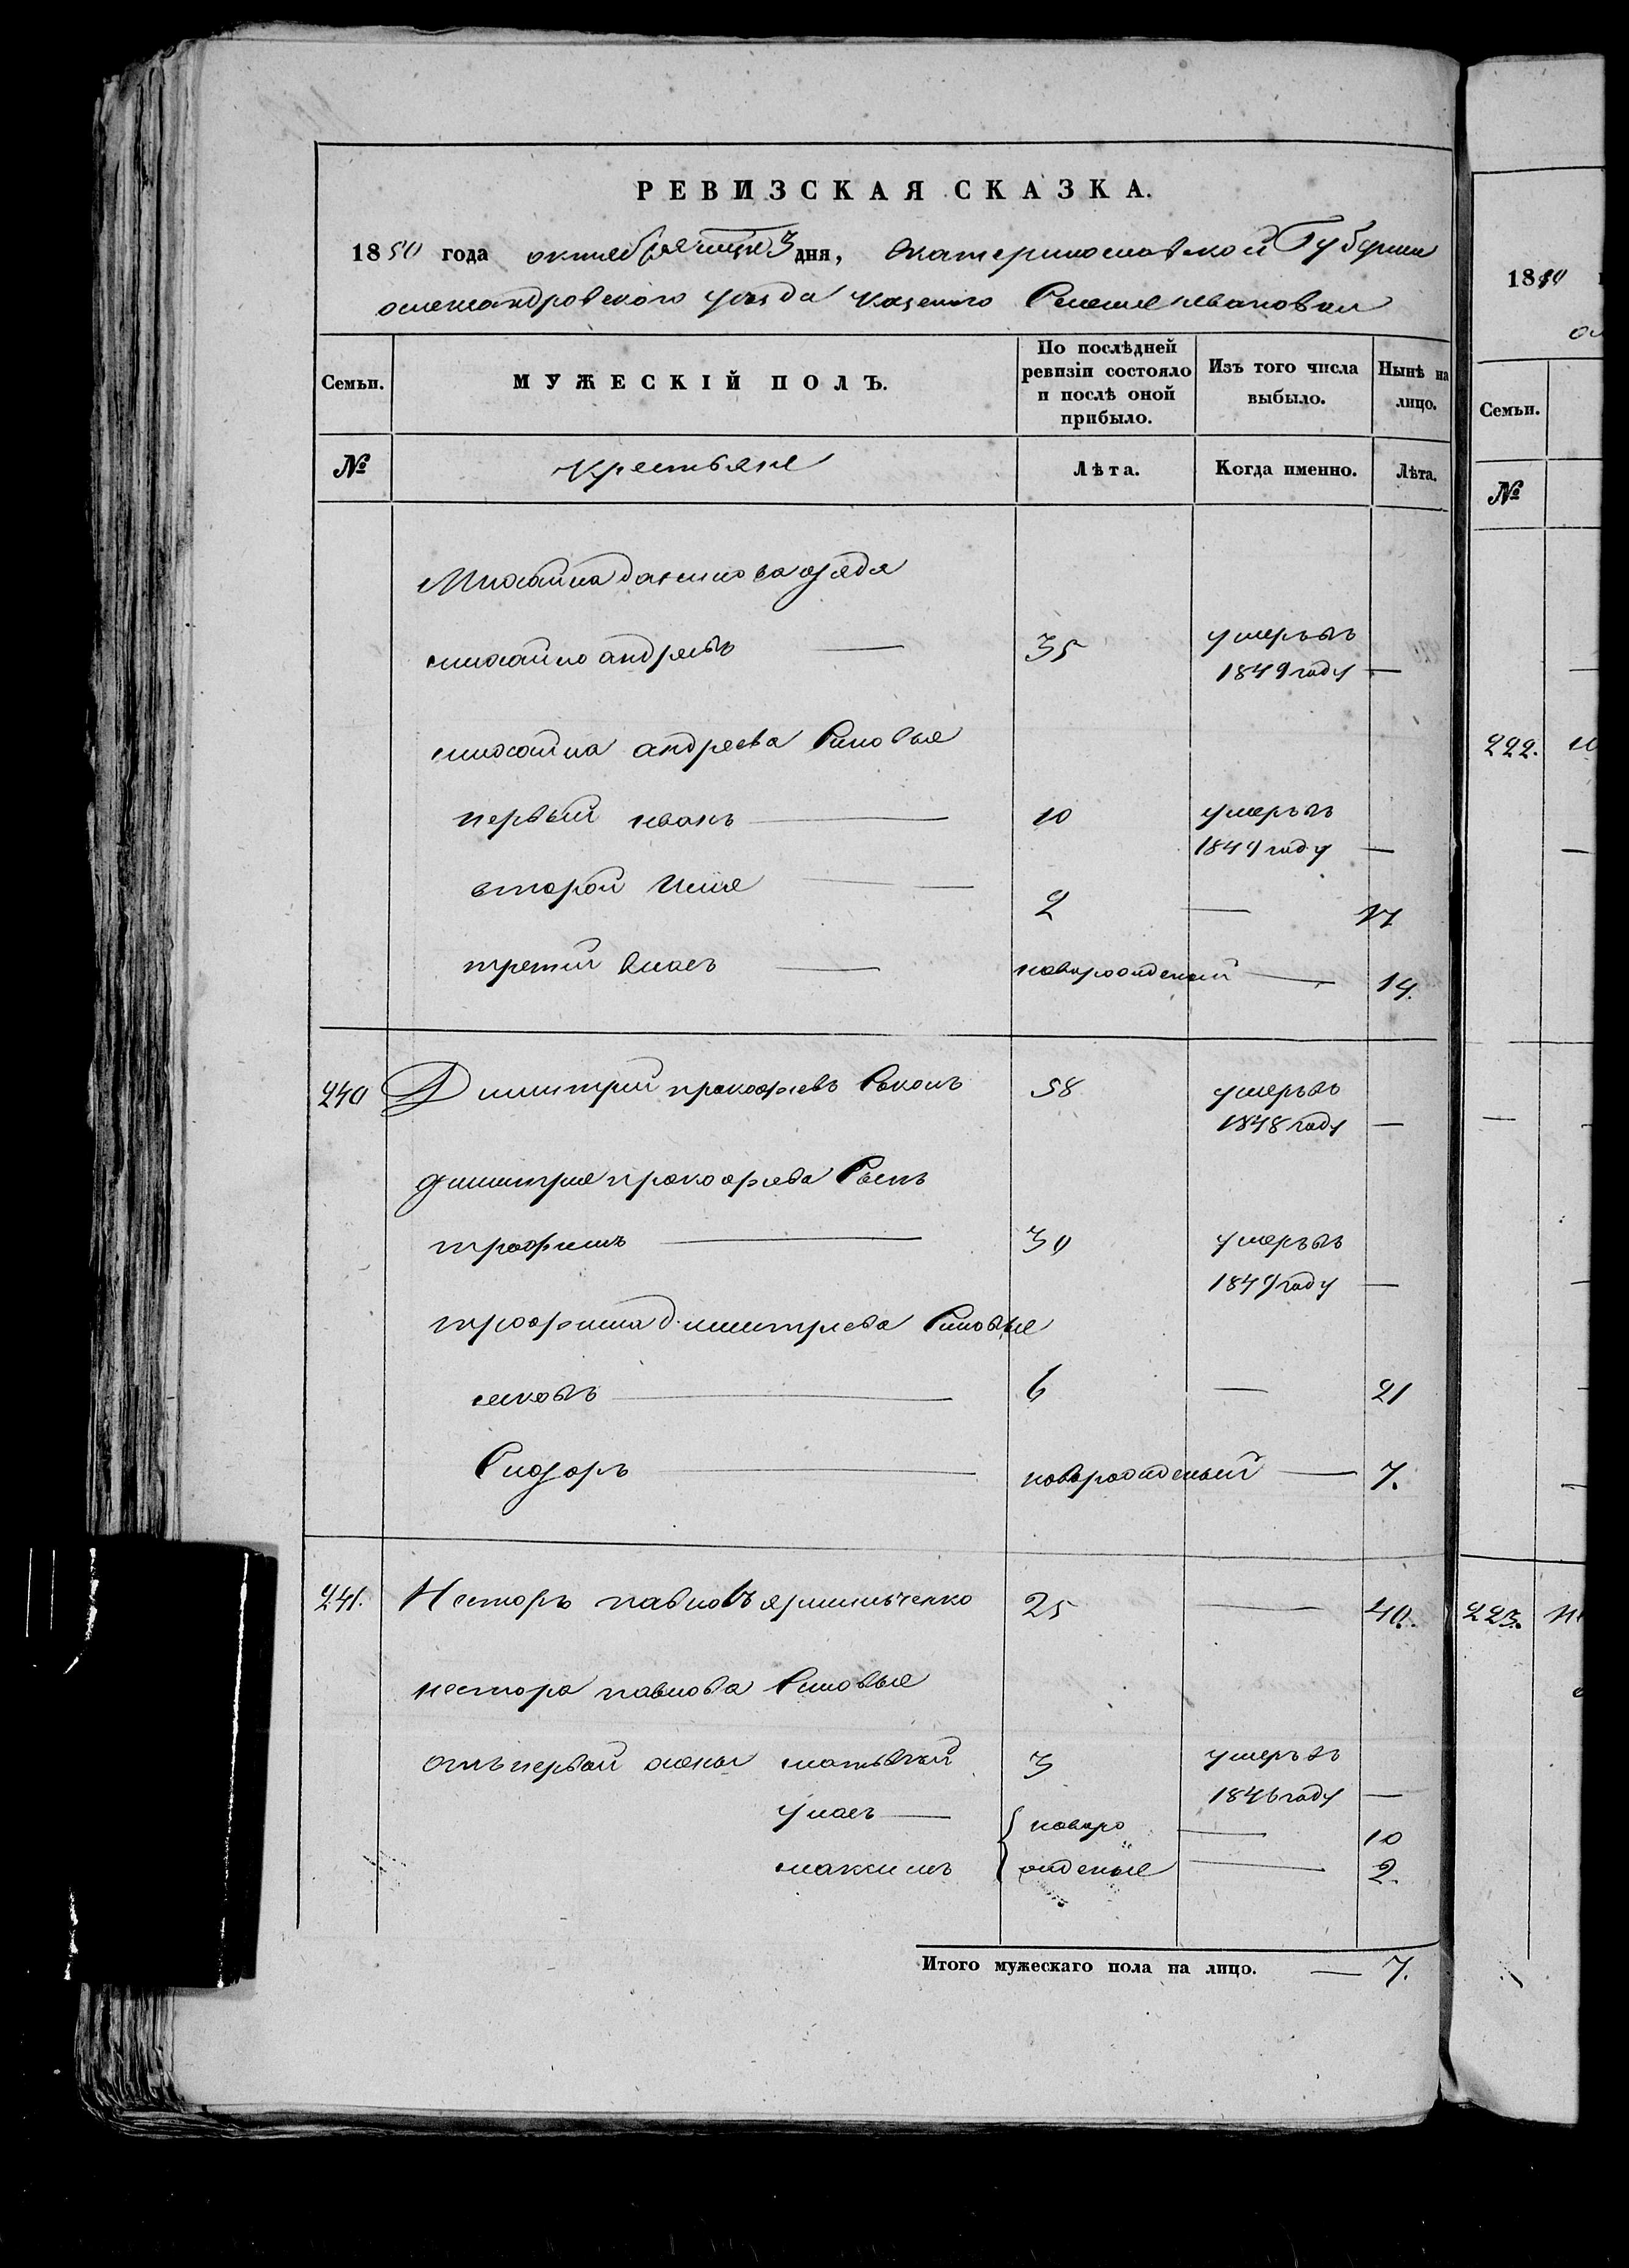 РЕВИЗСКАЯ СКАЗКА.
1850 года октебря месяца 3 дня, Екатеринославской Губернии
олександровского уезда казеного Селения ивановки
Семьи.
МУЖЕСКІЙ ПОЛЪ.
По послѣдней ревизіи состояло и послѣ оной прибыло.
Изъ того числа выбыло.
Нынѣ на лицо.
№
Крестьяне
Лѣта.
Когда именно.
Лѣта.
Михайла данилова зядя
михайло андреевъ — 35 умеръ въ
1849 году —
михайла андреева Сыновья
первый иванъ — 10 умеръ въ
1849 году —
второй илия — 2 — 17
третий власъ — новорожденый — 14.
240 Димитрий прокофиевъ 58 умеръ въ
1848 году —
димитрия прокофиева Сынъ
трофимъ — 30 умеръ въ
1849 году —
трофима димитриева Сыновья
яковъ — 6 — 21
Сидоръ — новорожденый — 7.
241. Несторъ павловъ ярмильченко 25 — 40.
нестора павлова Сыновья
отъ первой жены матьвей 3 умеръ въ
1846 году —
улаеъ — { новоро — 10
максимъ { жденые — 2.
Итого мужескаго пола на лицо. — 7.
18
Семьи.
№
222.
223.